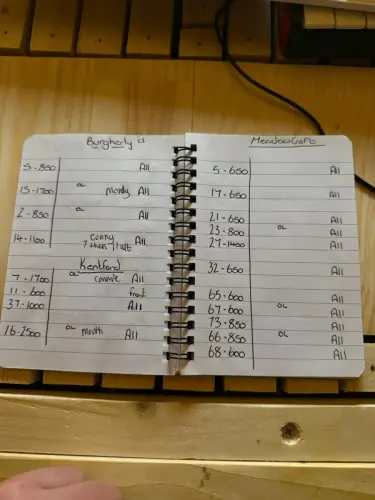 Burgherly cl
5 - 850 All
OL
15 - 1700 monthly All
OL
2 - 850 All
14 - 1100 conny All
7 then / last
Kentford
OL
7 - 1700 All
11 - 600 front
37 - 1000 All
OL
16 - 2500 month All
Meadowcroft
5 - 650 All
17 - 650 All
21 - 650 All
OL
23 - 800 All
27 - 1400 All
32 - 650 All
65 - 600 All
OL
67 - 600 All
73 - 850 All
OL
66 - 850 All
68 - 600 All